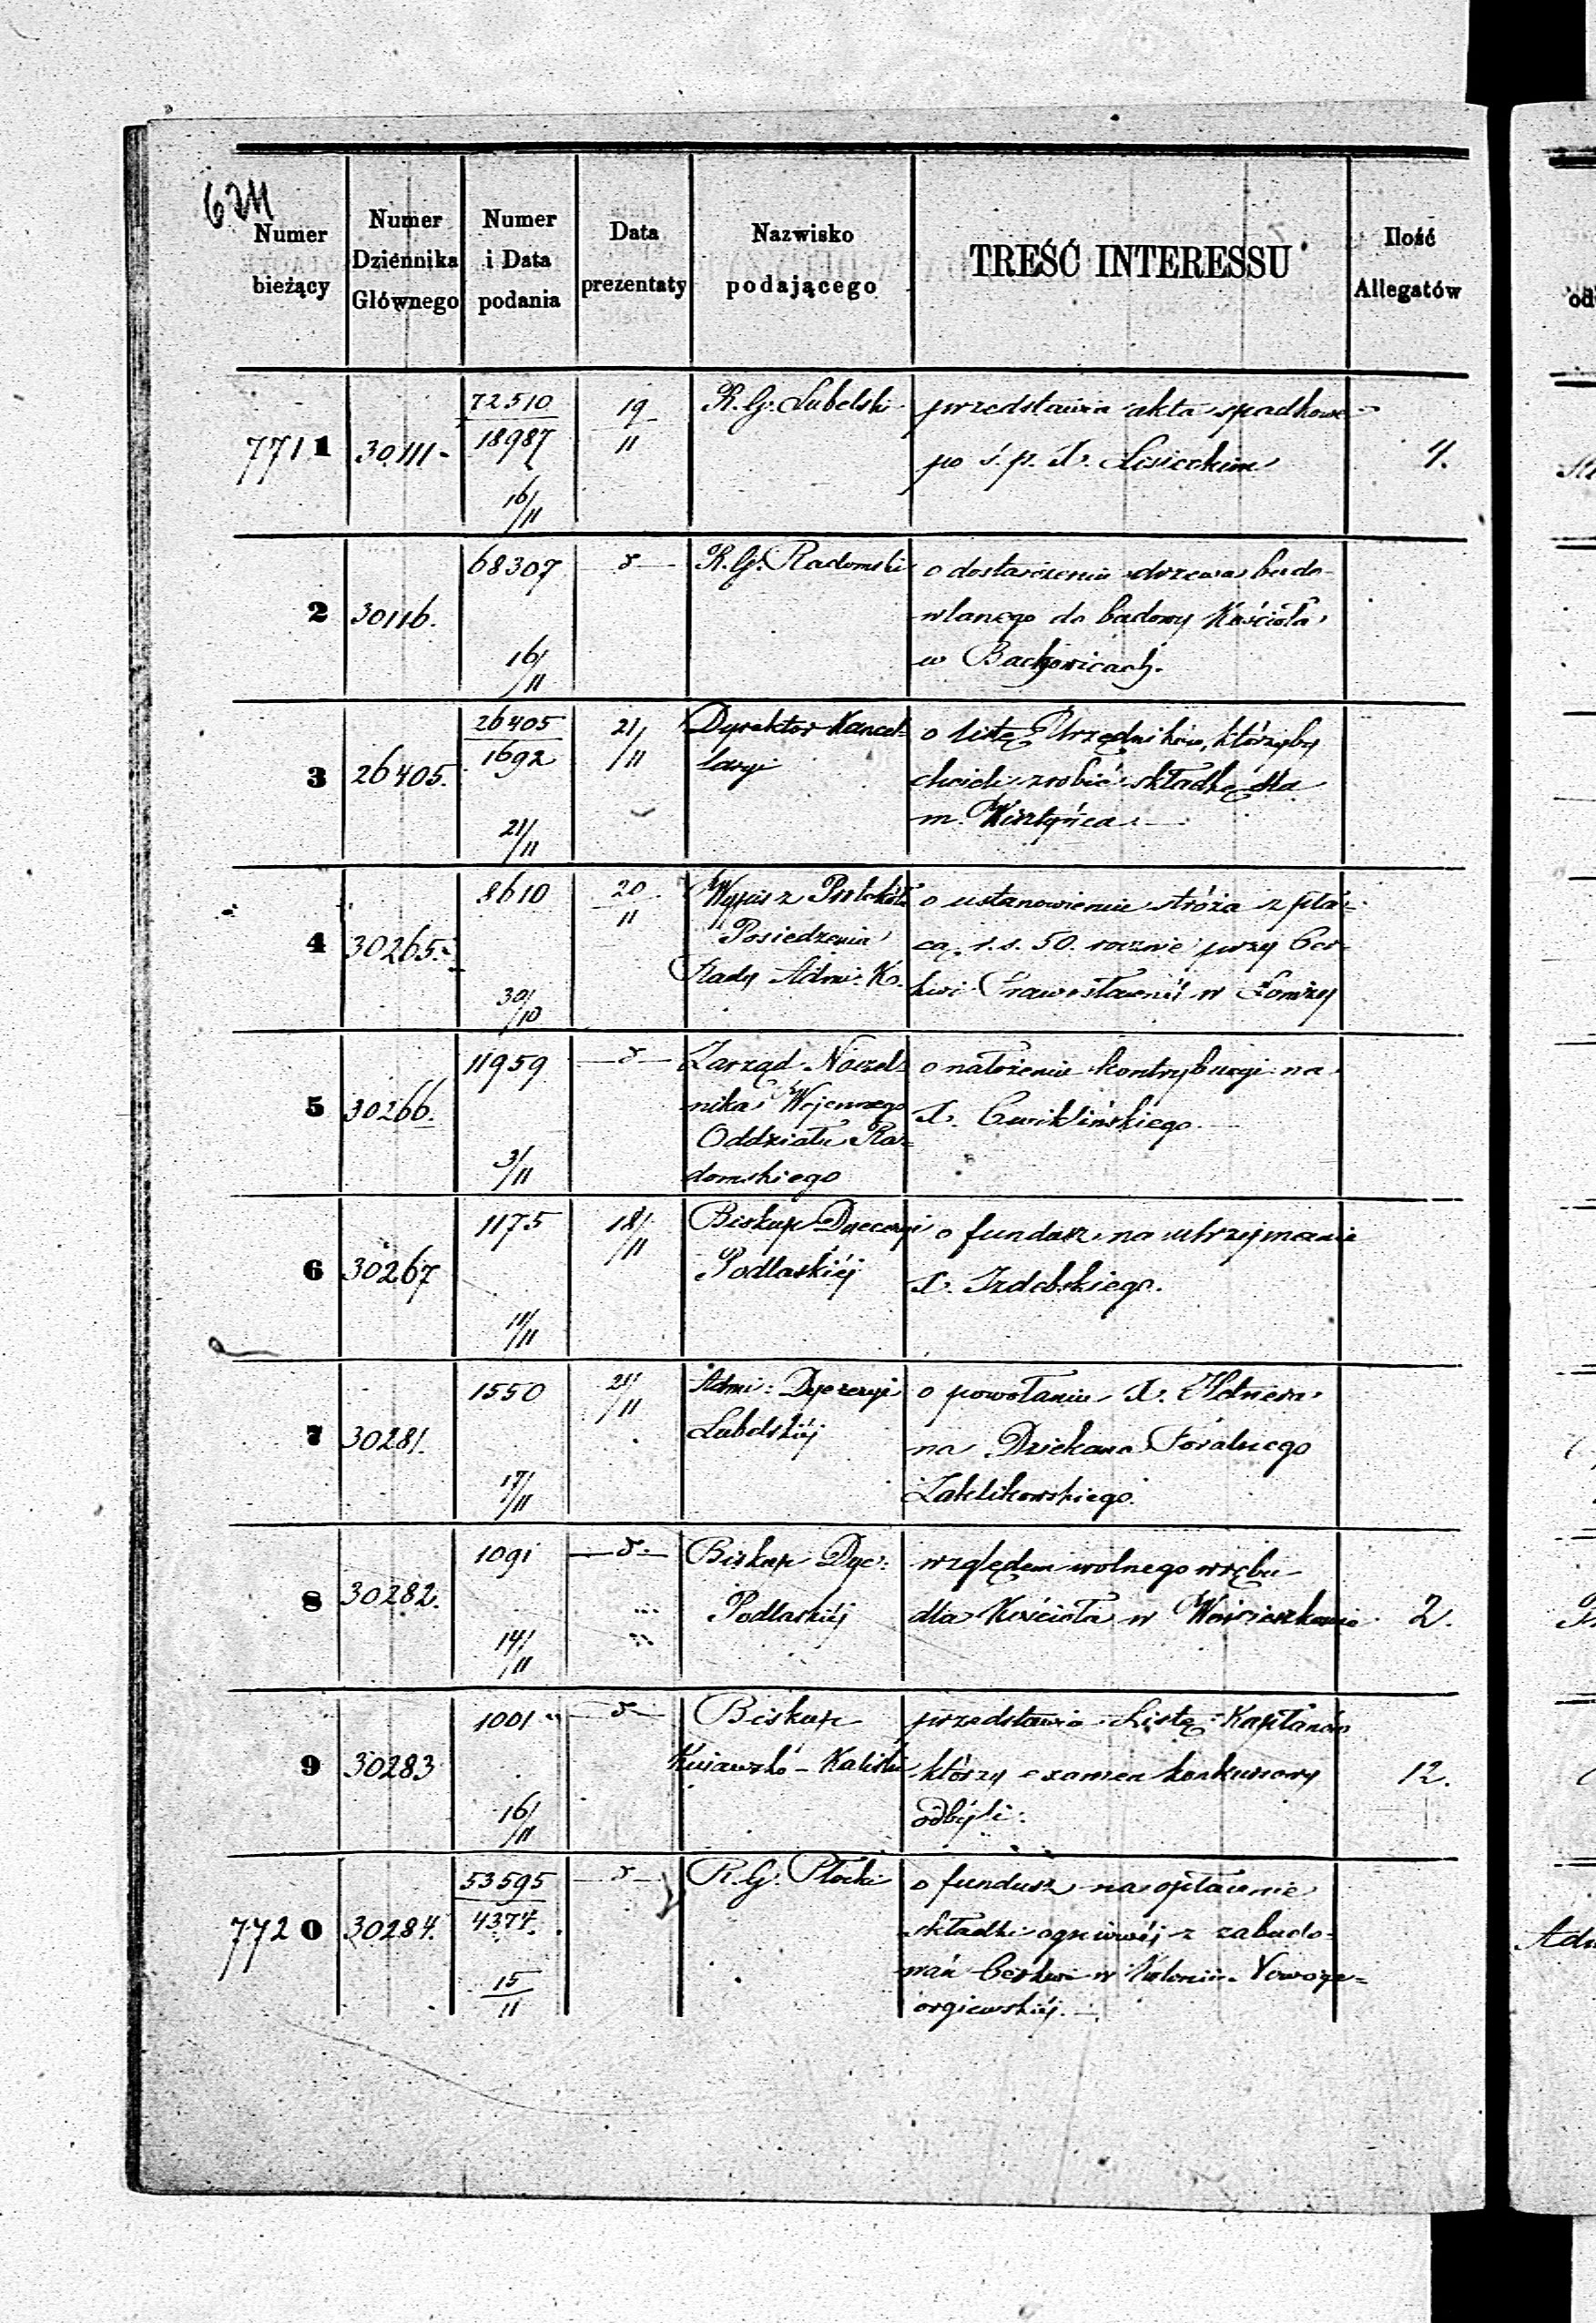 Numer bieżący
Numer Dziennika Głównego
Numer i Data podania
Data prezentaty
Nazwisko podającego
TREŚĆ INTERESSU
Ilość Allegatów
7711 30111 72510 19 R. G. Lubelski przedstawia akta spadkowe
18987 11 po ś. p. X. Lisieckim
16/11
2 30116. 68307 R. G. Radomski o dostarczenie drzewa budo-
wlanego do budowy Kościoła
16/11 w
3 26405. 26405 21/11 Dyrektor Kancel- o listę Urzędników, którzyby
1692 laryi chcieli zrobić składkę dla
21/11 m.
4 30265. 8610 20 Wypis z Protokółu o ustanowienie stróża z pła-
11 Posiedzenia cą r. s. 50. rocznie przy Cer-
30/10 Rady Admi: Kr. kwi Prawosławnéj w Łomży
5 30266. 11959 Zarząd Naczel- o nałożenie kontrybucyi na
nika Wojennego X. Cwiklińskiego
3/11 Oddziału Ra-
domskiego
6 30267 1175 18/11 Biskup Dyecezyi o fundusz na utrzymanie
Podlaskiéj X. Izdebskiego.
11/11
7 30281. 1550 21/11 Admi: Dyecezyi o powołanie X.
Lubelskiéj na Dziekana Foralnego
17/11 Zaklikowskiego.
8 30282. 1091 Biskup Dye: względem wolnego wrębu
Podlaskiéj dla Kościoła w 2.
14/11
9 30283 1001 Biskup przedstawia Listę Kapłanów
Kujawsko-Kaliski którzy examen konkursowy 12.
16/11 odbyli.
7720 30284. 53595 R. G. Płocki o fundusz na opłacenie
4374. składki ogniowéj z zabudo-
15 wań Cerkwi w Nowoge-
11 orgiewskiéj.